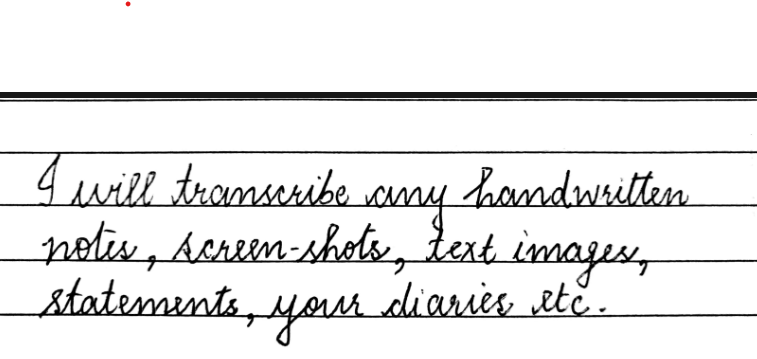 I will transcribe any handwritten
notes, screen-shots, text images,
statements, your diaries etc.